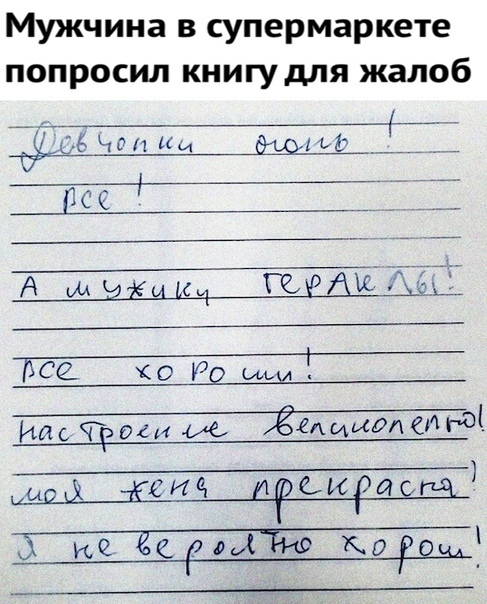 Мужчина в супермаркете
попросил книгу для жалоб
Девчонки огонь!
все!
А мужики ГЕРАКЛЫ!
все хороши!
настроение великолепно!
моя жена прекрасна!
Я не вероятно хорош!